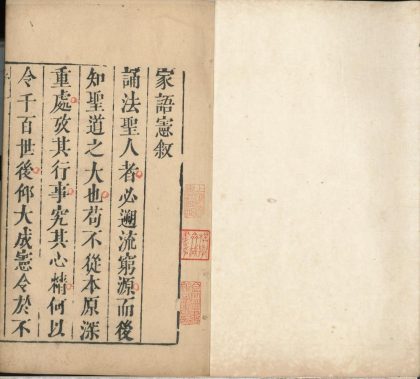 家語憲敘
誦法聖人者必遡流窮源而後
知聖道之大也苟不從本原深
重處攷其行事究其心精何以
令千百世後仰大成憲令於不